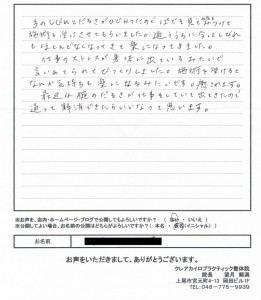 手のしびれとだるさがひどくてたので ぱどを見て みつけて
施術を受けさせてもらいました。通ううちに 今は しびれ
も ほとんどなくなってきて 楽になってきました。
仕事のストレスが 身体に出ているみたいで
言いあてられて びっくりしました。施術を受けると
なんか気持も楽になるみたいです。癒されます。
最近は腕のだるさが仕事をしていて出てきたので
通って解消ができたらいいなって思います。
※お声を、店内・ホームページ・ブログで公開してもよろしいですか? (はい・いいえ)
※公開してよい場合、お名前の公開はどちらがよろしいですか? (本名・仮名(イニシャル)
お名前
お声をいただきまして、ありがとうございます。
クレアカイロプラクティック整体院
院長 望月
上尾市宮元町4-13 岡田ビル1F
TEL:048-775-9939